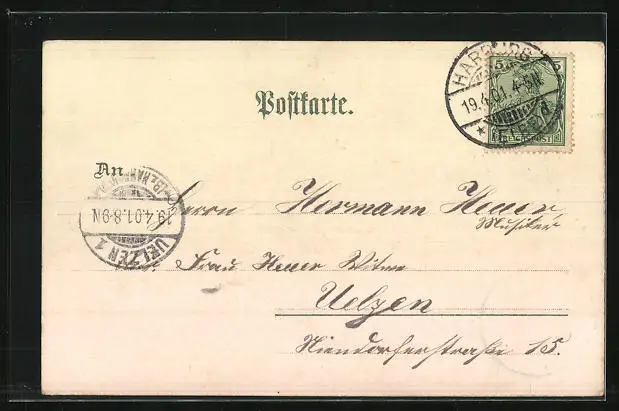 Postkarte.
HARBURG
19.4.01. 4-5N
* (ELBE) d
5 5
REICHSPOST
An
19.4.01.8-9N
UELZEN 1
Herrn Hermann Heuer
Musiker
Frau Heuer Witwe
Uelzen
Niendorferstraße 15.